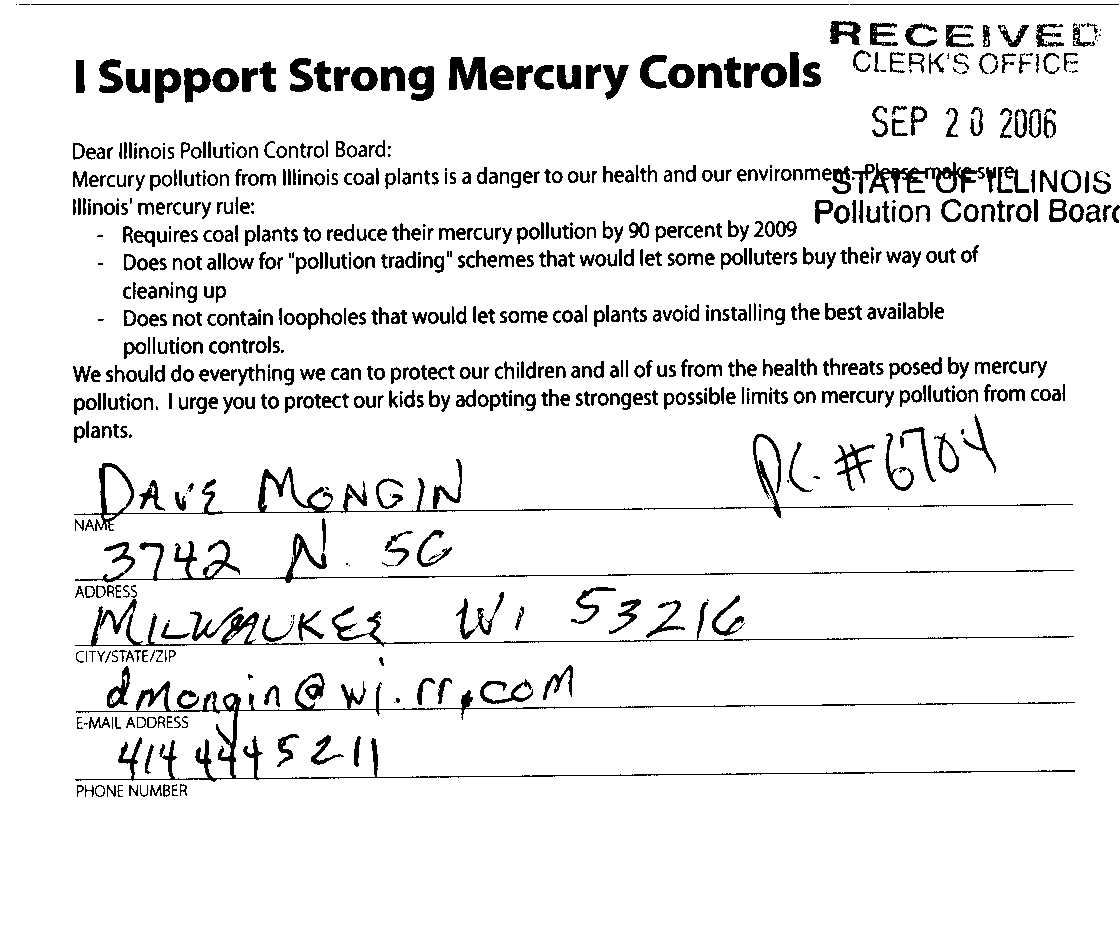 RECEIVED
CLERK'S OFFICE
I Support Strong Mercury Controls
SEP 20 2006
Dear Illinois Pollution Control Board:
Mercury pollution from Illinois coal plants is a danger to our health and our environment. Please make sure
STATE OF ILLINOIS
Illinois' mercury rule:
Pollution Control Board
- Requires coal plants to reduce their mercury pollution by 90 percent by 2009
- Does not allow for "pollution trading" schemes that would let some polluters buy their way out of
cleaning up
- Does not contain loopholes that would let some coal plants avoid installing the best available
pollution controls.
We should do everything we can to protect our children and all of us from the health threats posed by mercury
pollution. I urge you to protect our kids by adopting the strongest possible limits on mercury pollution from coal
plants.
PC #6704
DAVE MONGIN
NAME
3742 N. 56
ADDRESS
MILWAUKEE WI 53216
CITY/STATE/ZIP
dmongin@wi.rr.com
E-MAIL ADDRESS
414 444 5211
PHONE NUMBER